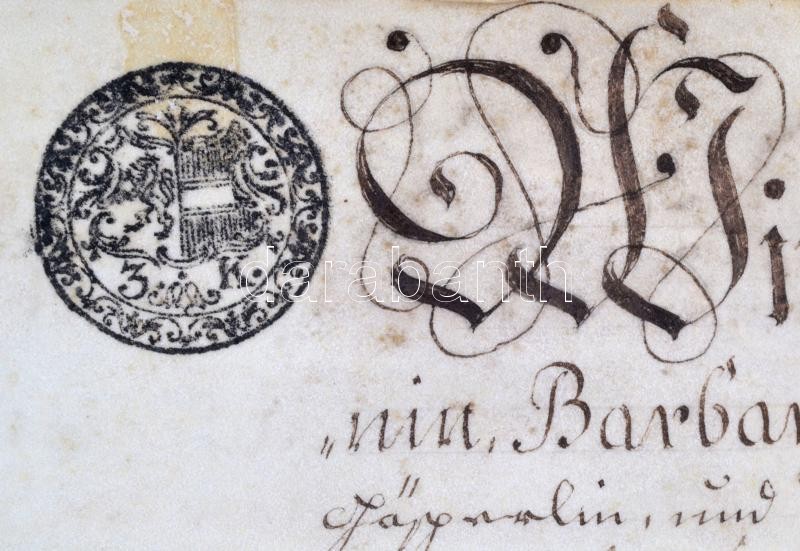 3 K.
Wi
„nin, Barbar
Gäsperlin, und
darabanth